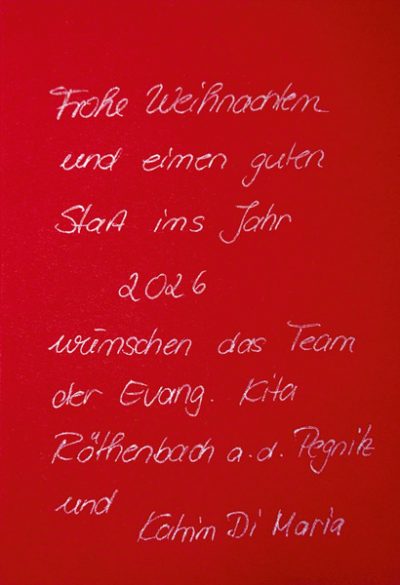 Frohe Weihnachten
und einen guten
Start ins Jahr
2026
wünschen das Team
der Evang. Kita
Röthenbach a.d. Pegnitz
und
Katrin Di Maria